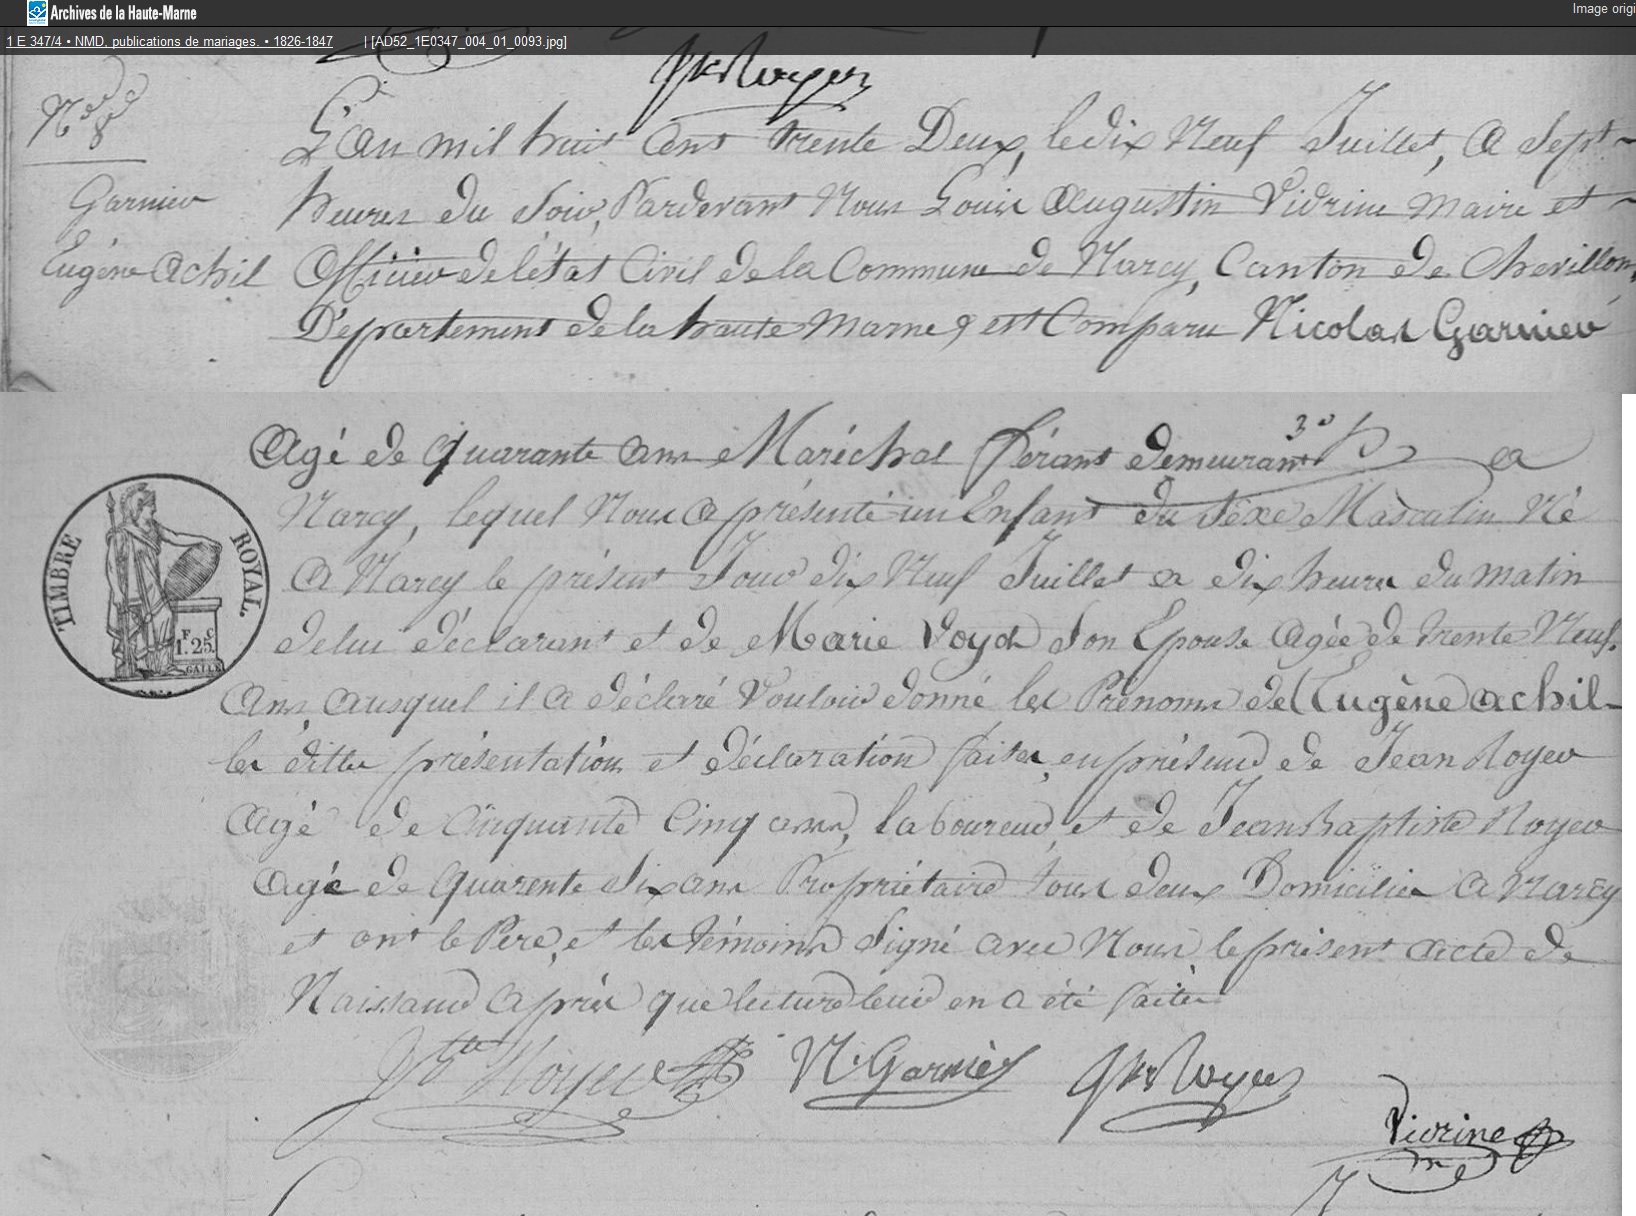 Archives de la Haute-Marne
Image origi
1 E 347/4 • NMD, publications de mariages. • 1826-1847 | [AD52_1E0347_004_01_0093.jpg]
Jn Royer
N° 8
L'an mil huit cens trente Deux, le dix Neuf Juillet, a Sept
Garnier
heures du Soir, Pardevant Nous Louis Augustin Vidrine Maire et
Eugéne Achil
Officier de l'état Civil de la Commune de Narcy, Canton de Chevillon,
Département de la haute Marne, est Comparu Nicolas Garnier
3e
Agé de quarante ans Maréchal férant demeurant a
Narcy, lequel Nous a présenté un Enfant du Séxe Masculin Né
TIMBRE ROYAL
a Narcy le présent Jour dix Neuf Juillet a dix heures du matin
F C
1.25.
GALLE
de lui déclarant et de Marie Voyd Son Epouse Agée de trente Neuf
Ans, ausquel il a déclaré Vouloir donné les Prénoms de Eugène Achil
les dittes présentation et déclaration faites en présence de Jean Royer
agé de Cinquante Cinq ans, laboureur, et de Jean Baptiste Royer
agé de Quarente Six ans Propriétaire tous deux Domicilier a Narcy
et ont le Pere, et les témoins Signé avec Nous le présent acte de
Naissance après que lecture leur en a été faite
Jn Bte Royer N. Garnier Jn Royer
Vidrine